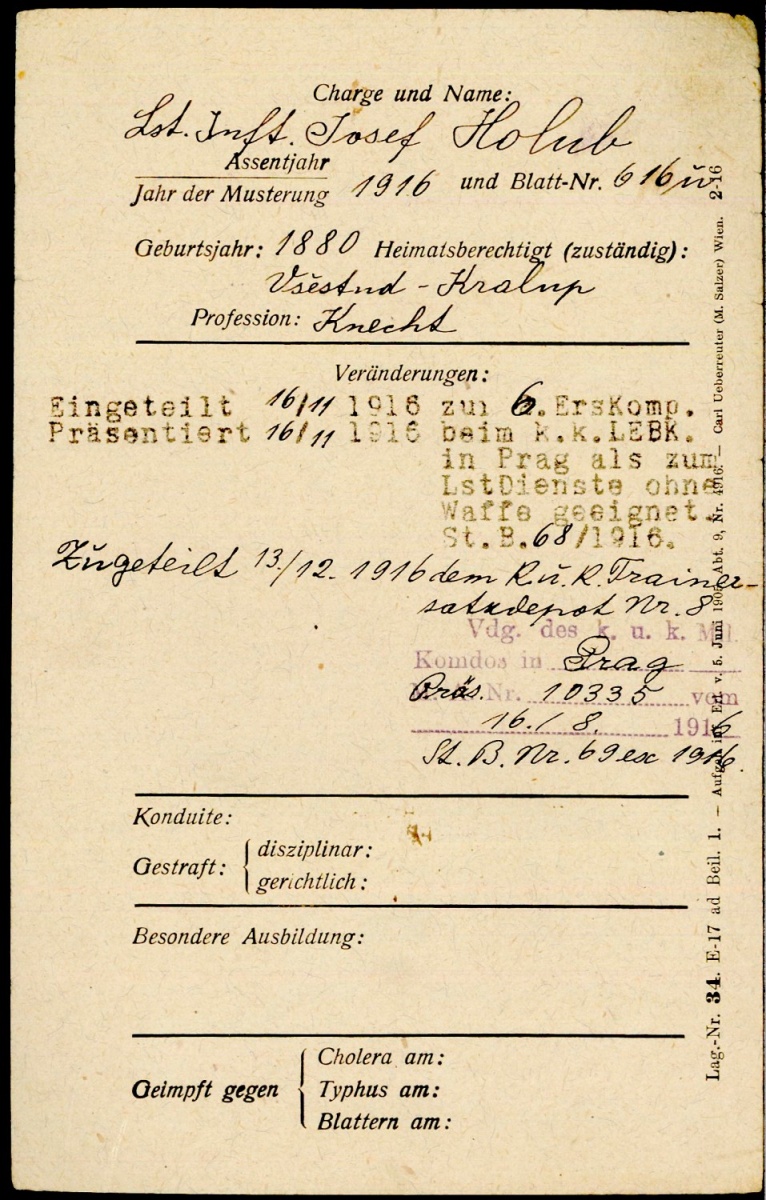 Charge und Name:
Lst. Inft. Josef Holub
Assentjahr
Jahr der Musterung 1916 und Blatt-Nr. 616 ū
Geburtsjahr: 1880 Heimatsberechtigt (zuständig):
Všestud - Kralup
Profession: Knecht
Veränderungen:
Eingeteilt 16/11 1916 zur 6. ErsKomp.
Präsentiert 16/11 1916 beim k.k.LEBK.
in Prag als zum
LstDienste ohne
Waffe geeignet.
St.B. 68/1916.
Zugeteilt 13/12. 1916 dem k. u. k. Trainer-
satzdepot Nr. 8
Vdg. des k. u. k. Mil.
Komdos in Prag
Präs. Nr. 10335 vom
16./8. 1916
St. B. Nr. 69 ex 1916.
Konduite:
Gestraft: disziplinar:
gerichtlich:
Besondere Ausbildung:
Geimpft gegen Cholera am:
Typhus am:
Blattern am:
Lag.-Nr. 34. E-17 ad Beil. 1. — Erl. v. 5. Juni Abt. 9, Nr. — Carl Ueberreuter (M. Salzer) Wien. 2-16